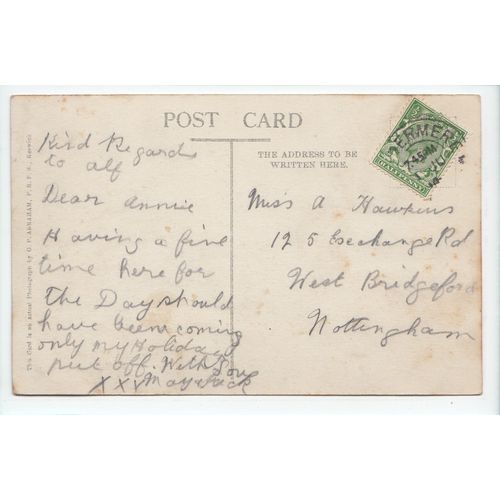 POST CARD
THE ADDRESS TO BE
WRITTEN HERE.
This Card is an Actual Photograph by G. P. ABRAHAM, F.R.P.S., Keswick
Kind Regards
to alf
Dear annie
Having a fine
time here for
The Day should
have been coming
only my Holiday
put off. With Love
XXX
Miss A Hawkins
125 Exchange Rd
West Bridgeford
Nottingham
ERMERE
7.45 AM